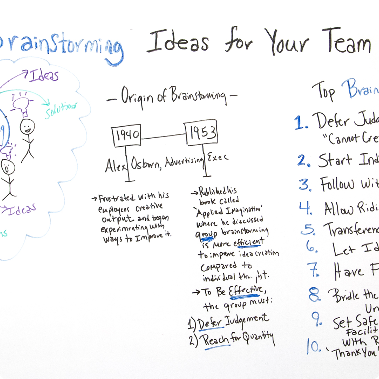 Brainstorming Ideas for Your Team
Ideas
Solutions
Ideas
— Origin of Brainstorming —
1940
1953
Alex Osborn, Advertising Exec
→ Frustrated with his
employees creative
output and began
experimenting with
ways to improve it.
→ Published his
book called
"Applied Imagination"
where he discussed
group brainstorming
is more efficient
to improve idea creation
compared to
individual thought.
→ To Be Effective,
the group must:
1) Defer Judgement
2) Reach for Quantity
Top Brain
1. Defer Judg
"Cannot Cre
2. Start Ind
3. Follow Wit
4. Allow Ridi
5. Transferenc
6. Let Id
7. Have F
8. Bridle the
Un
9. Set Safe
Facilit
10. With B
"Thank You